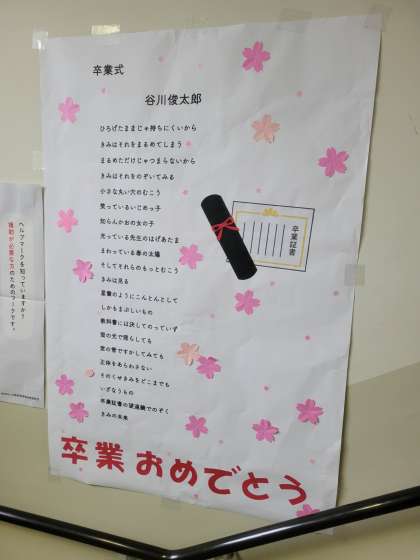 卒業式
谷川俊太郎
ひろげたままじゃ持ちにくいから
きみはそれをまるめてしまう
まるめただけじゃつまらないから
きみはそれをのぞいてみる
小さな丸い穴のむこう
笑っているいじめっ子
知らんかおの女の子
光っている先生のはげあたま
まわっている春の太陽
そしてそれらのもっとむこう
きみは見る
星雲のようにこんとんとして
しかもまぶしいもの
教科書には決してのっていず
蛍の光で照らしても
窓の雪ですかしてみても
正体をあらわさない
そのくせきみをどこまでも
いざなうもの
卒業証書の望遠鏡でのぞく
きみの未来
卒業証書
卒業おめでとう
ヘルプマークを知っていますか？
援助が必要な方のためのマークです。